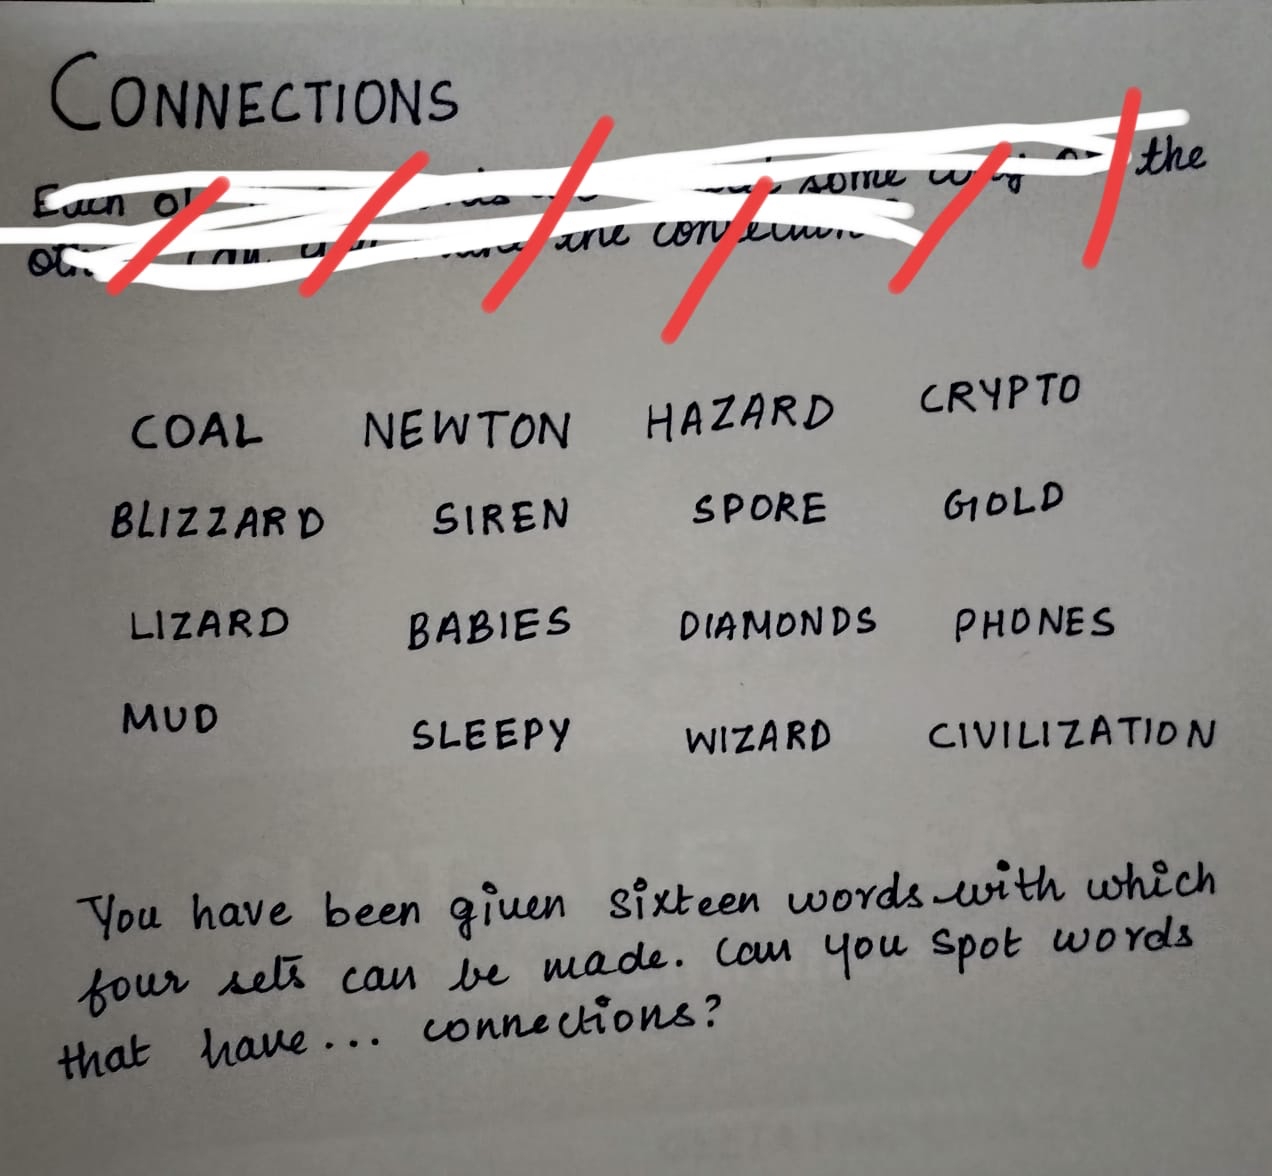 CONNECTIONS
Each some the
the
COAL NEWTON HAZARD CRYPTO
BLIZZARD SIREN SPORE GOLD
LIZARD BABIES DIAMONDS PHONES
MUD SLEEPY WIZARD CIVILIZATION
You have been given sixteen words with which
four sets can be made. Can you spot words
that have... connections?